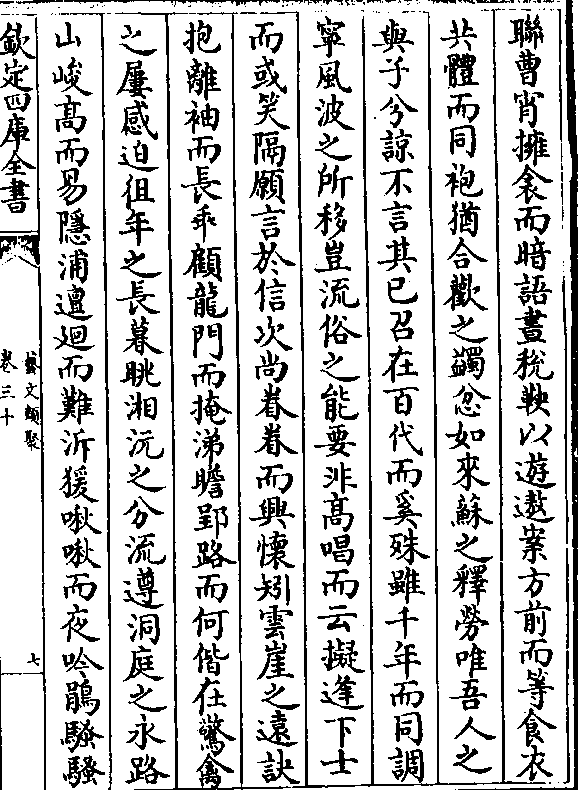 聯曹宵擁衾而暗語晝稅鞅以遊遨案方前而等食衣
共體而同袍猶合歡之蠲忿如來蘇之釋勞唯吾人之
與子兮諒不言其已召在百代而奚殊雖千年而同調
寧風波之所移豈流俗之能要非高唱而云擬逢下士
而或笑隔願言於信次尚眷眷而興懷矧雲崖之遠訣
抱離袖而長乖顧龍門而掩涕瞻郢路而何偕在驚禽
之屢感迫徂年之長暮眺湘沅之分流遵洞庭之永路
山峻高而易隱浦邅廻而難泝猨啾啾而夜吟鵑騷騷
欽定四庫全書
藝文類聚
卷三十
七